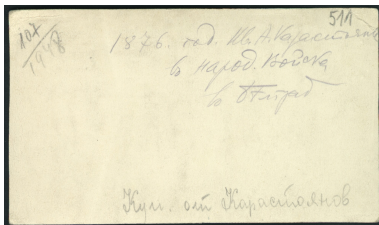 511
107/1948
1876. год. Ив. А. Карастоянов
в народ. войска
в Бѣлград
Куп. от Карастоянов